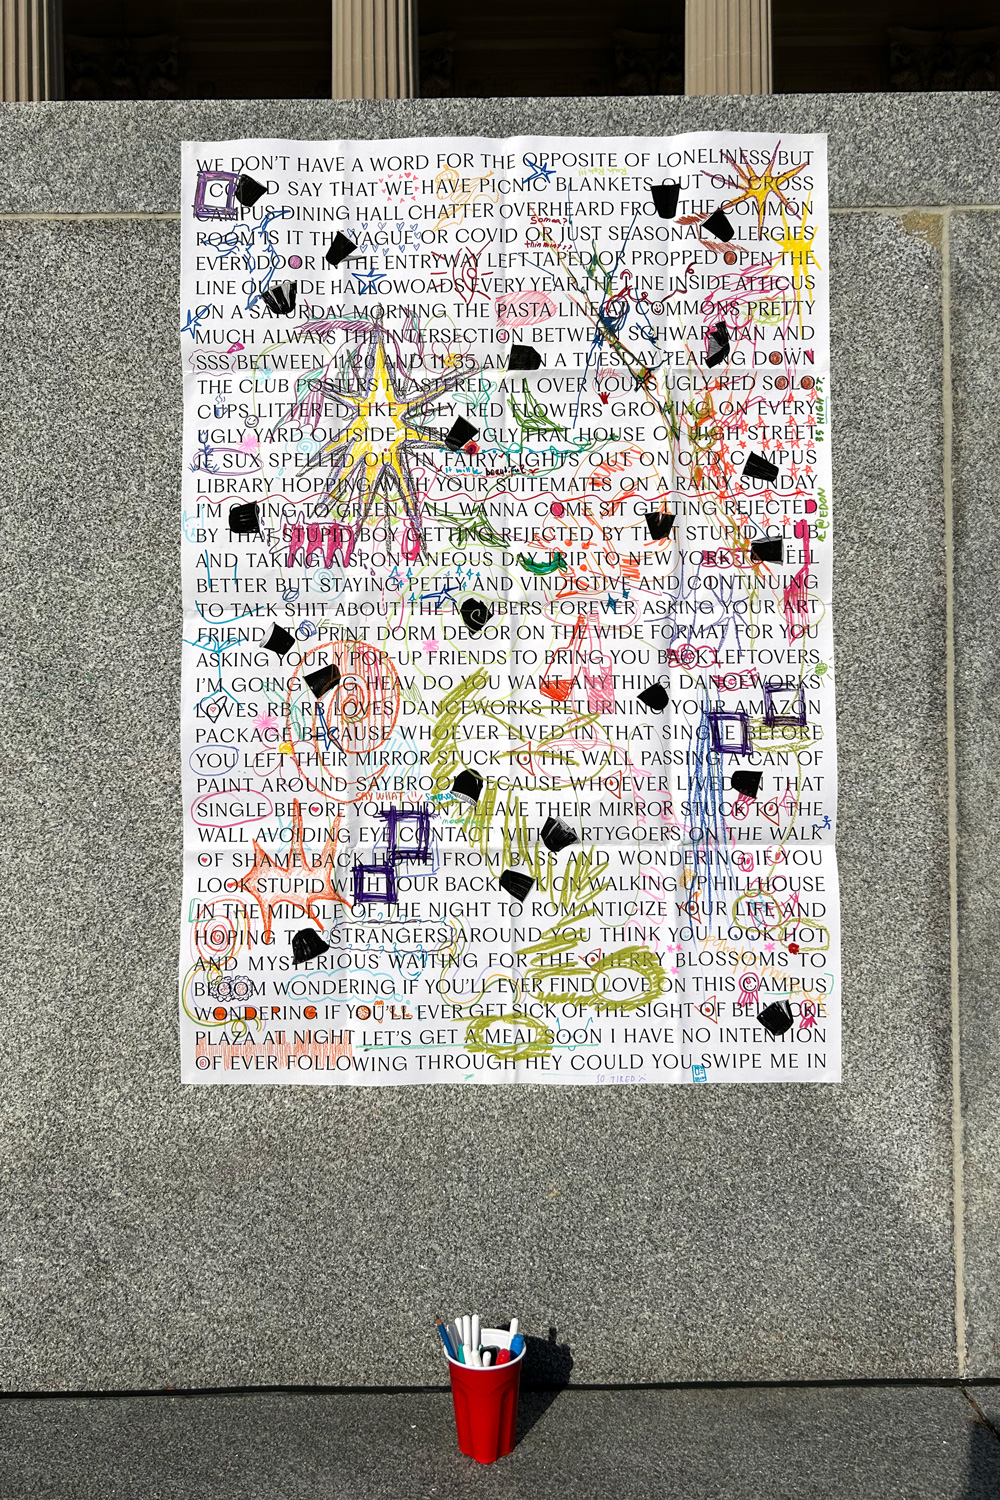 WE DON'T HAVE A WORD FOR THE OPPOSITE OF LONELINESS BUT
SAY THAT WE HAVE PICNIC BLANKETS OUT ON CROSS
CAMPUS DINING HALL CHATTER OVERHEARD FROM THE COMMON
ROOM IS IT THE OR COVID OR JUST SEASONAL ALLERGIES
EVERY DOOR IN THE ENTRYWAY LEFT TAPED OR PROPPED OPEN THE
LINE OUTSIDE EVERY YEAR THE LINE INSIDE ATTICUS
ON A SATURDAY MORNING THE PASTA LINE AT COMMONS PRETTY
MUCH ALWAYS THE INTERSECTION BETWEEN SCHWARZMAN AND
SSS BETWEEN 11:20 AND 11:35 AM ON A TUESDAY TEARING DOWN
THE CLUB POSTERS PLASTERED ALL OVER YOURS UGLY RED SOLO
CUPS LITTERED LIKE UGLY RED FLOWERS GROWING ON EVERY
35 HIGH ST.
UGLY YARD OUTSIDE EVERY UGLY FRAT HOUSE ON HIGH STREET
JE SUX SPELLED OUT IN FAIRY LIGHTS OUT ON OLD CAMPUS
LIBRARY HOPPING WITH YOUR SUITEMATES ON A RAINY SUNDAY
I'M GOING TO GREEN HALL WANNA COME SIT GETTING REJECTED
BY THAT STUPID BOY GETTING REJECTED BY THAT STUPID CLUB
AND TAKING A SPONTANEOUS DAY TRIP TO NEW YORK TO FEEL
BETTER BUT STAYING PETTY AND VINDICTIVE AND CONTINUING
TO TALK SHIT ABOUT THE MEMBERS FOREVER ASKING YOUR ART
FRIENDS TO PRINT DORM DECOR ON THE WIDE FORMAT FOR YOU
ASKING YOUR POP-UP FRIENDS TO BRING YOU BACK LEFTOVERS
I'M GOING HEAV DO YOU WANT ANYTHING DANCEWORKS
LOVES RB RB LOVES DANCEWORKS RETURNING YOUR AMAZON
PACKAGE BECAUSE WHOEVER LIVED IN THAT SINGLE BEFORE
YOU LEFT THEIR MIRROR STUCK TO THE WALL PASSING A CAN OF
PAINT AROUND SAYBROOK BECAUSE WHOEVER LIVED IN THAT
SAY WHAT!!
SINGLE BEFORE YOU DIDN'T LEAVE THEIR MIRROR STUCK TO THE
WALL AVOIDING EYE CONTACT WITH PARTYGOERS ON THE WALK
OF SHAME BACK HOME FROM BASS AND WONDERING IF YOU
LOOK STUPID WITH YOUR BACKPACK ON WALKING UP HILLHOUSE
IN THE MIDDLE OF THE NIGHT TO ROMANTICIZE YOUR LIFE AND
HOPING THE STRANGERS AROUND YOU THINK YOU LOOK HOT
AND MYSTERIOUS WAITING FOR THE CHERRY BLOSSOMS TO
BLOOM WONDERING IF YOU'LL EVER FIND LOVE ON THIS CAMPUS
WONDERING IF YOU'LL EVER GET SICK OF THE SIGHT OF BEINECKE
PLAZA AT NIGHT LET'S GET A MEAL SOON I HAVE NO INTENTION
OF EVER FOLLOWING THROUGH HEY COULD YOU SWIPE ME IN
SO TIRED